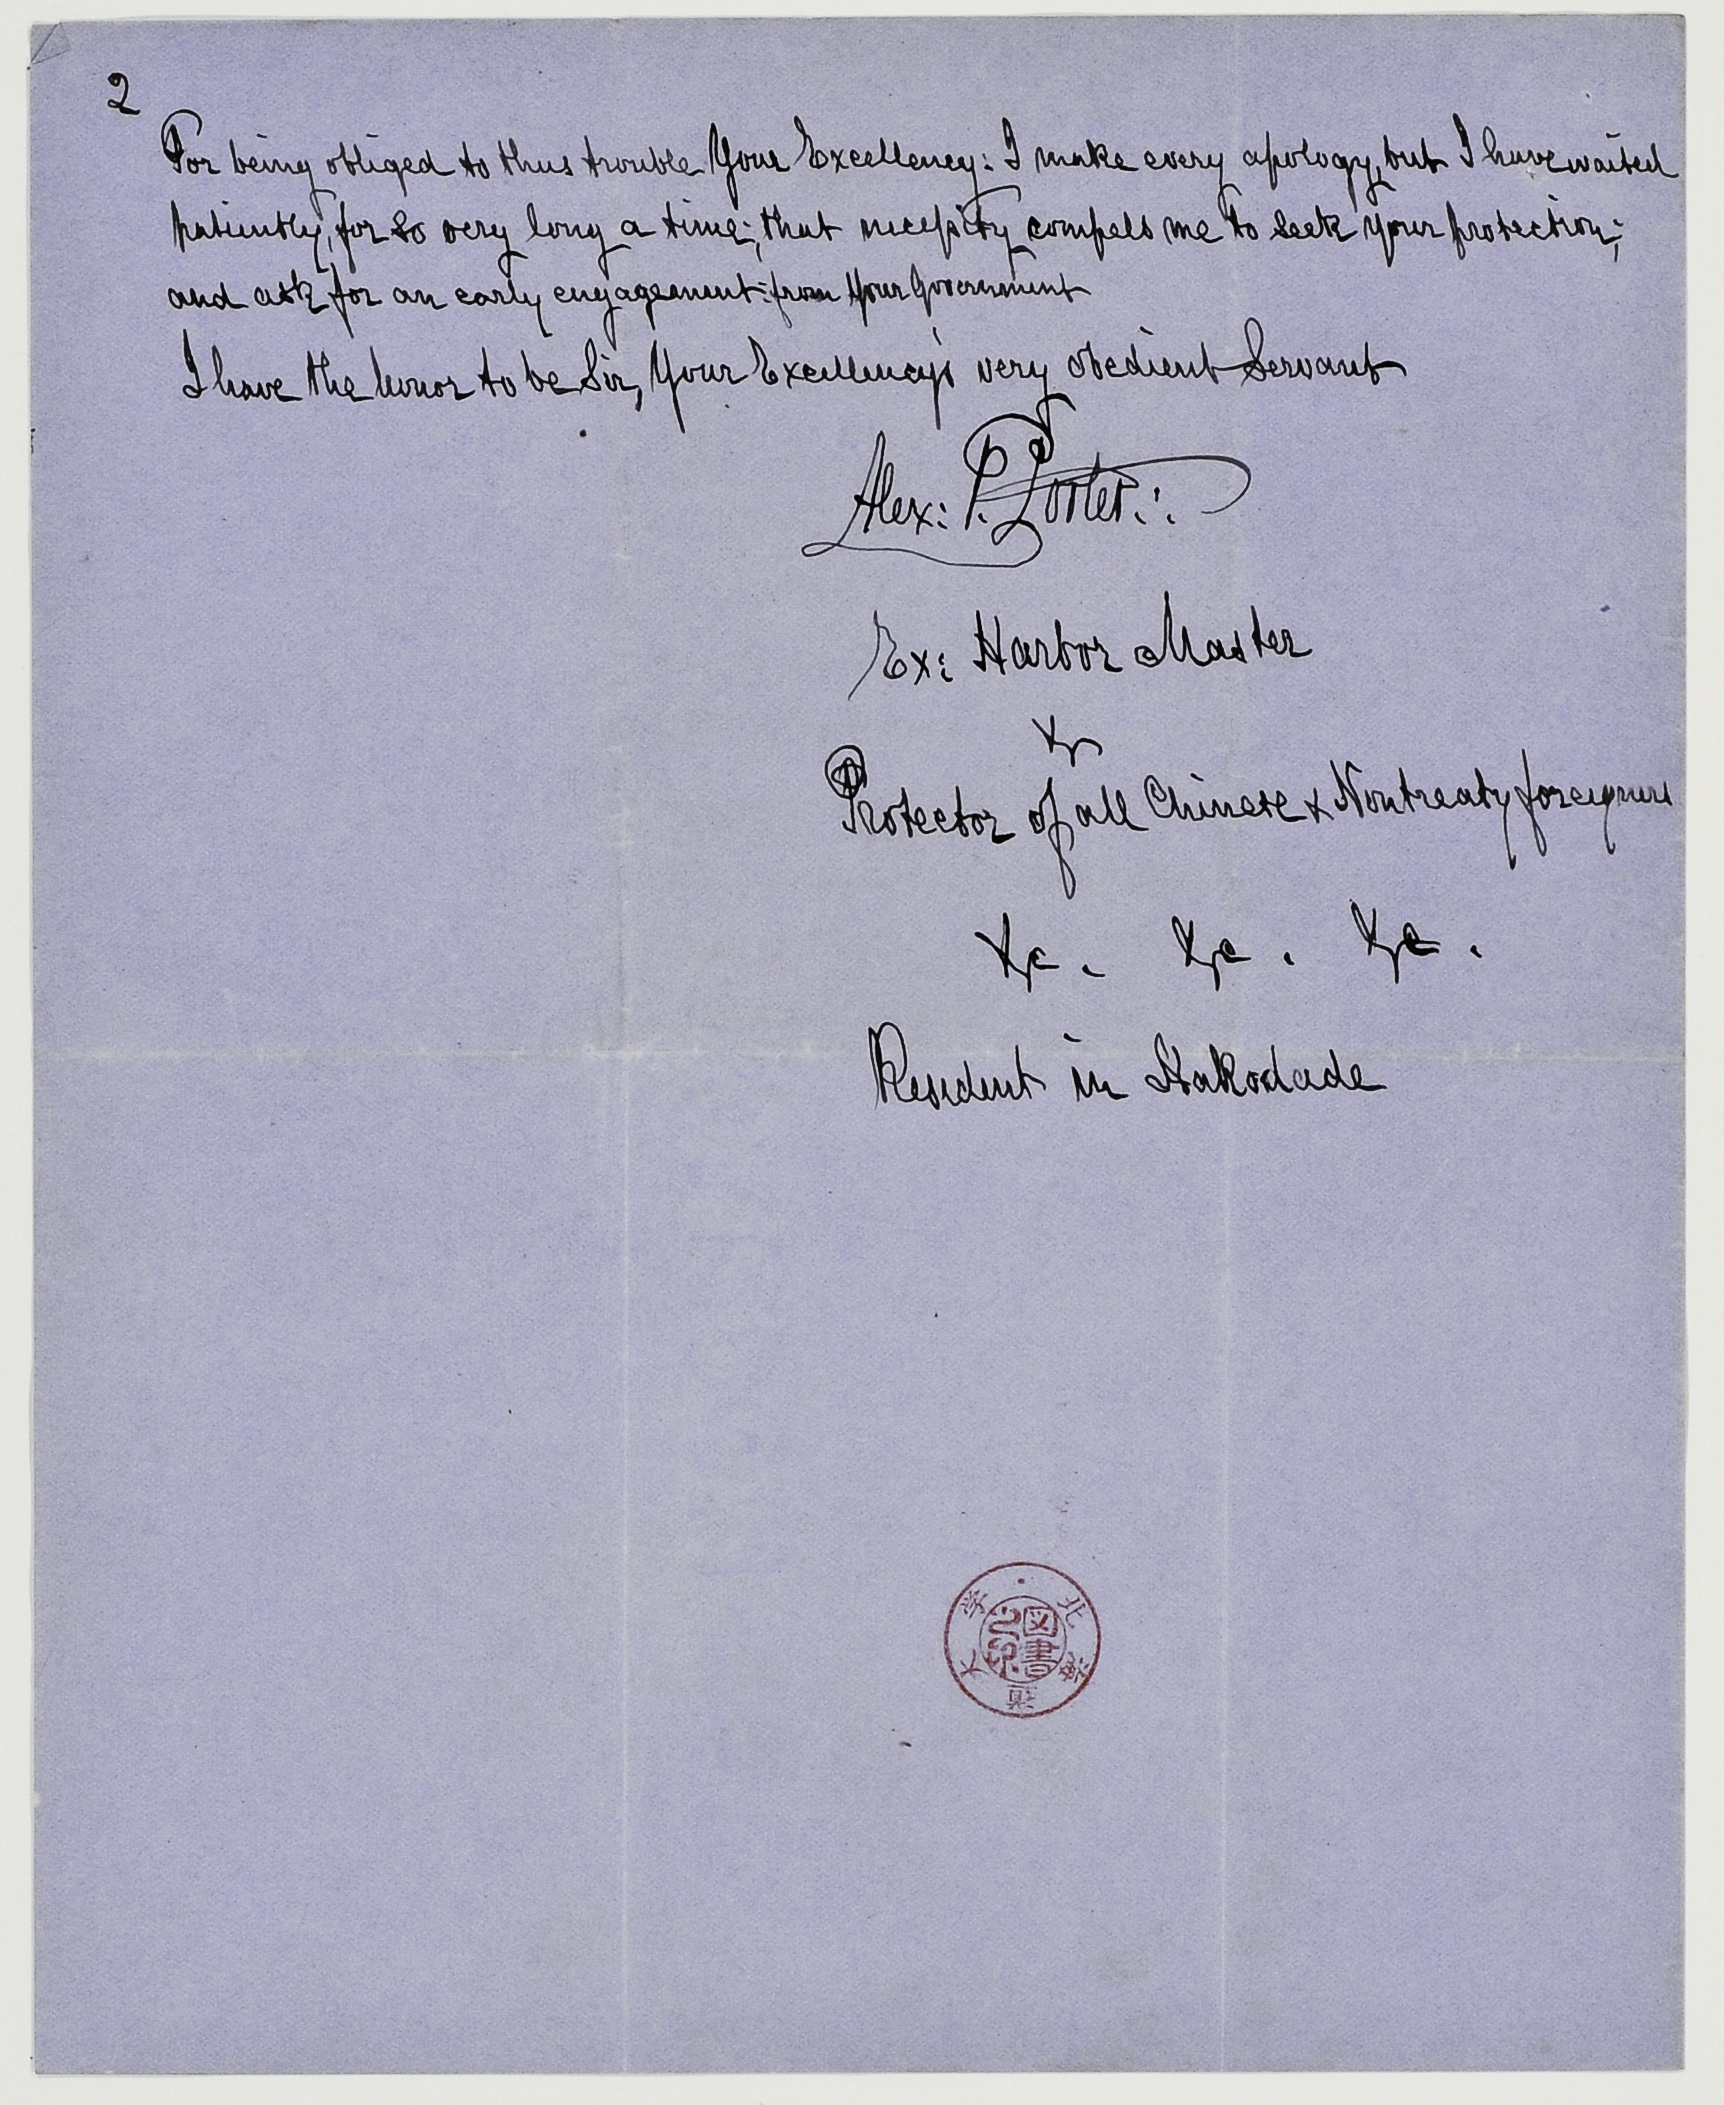 2
For being obliged to thus trouble Your Excellency: I make every apology, but I have waited
patiently, for so very long a time; that necessity compels me to seek your protection;
and ask for an early engagement: from Your Government
I have the honor to be Sir, Your Excellency's very obedient Servant
Alex: P. Porter.:.
Ex: Harbor Master
&
Protector of all Chinese & Nontreaty foreigners
&c. &c. &c.
Resident in Hakodade
北海道大学
図書之印